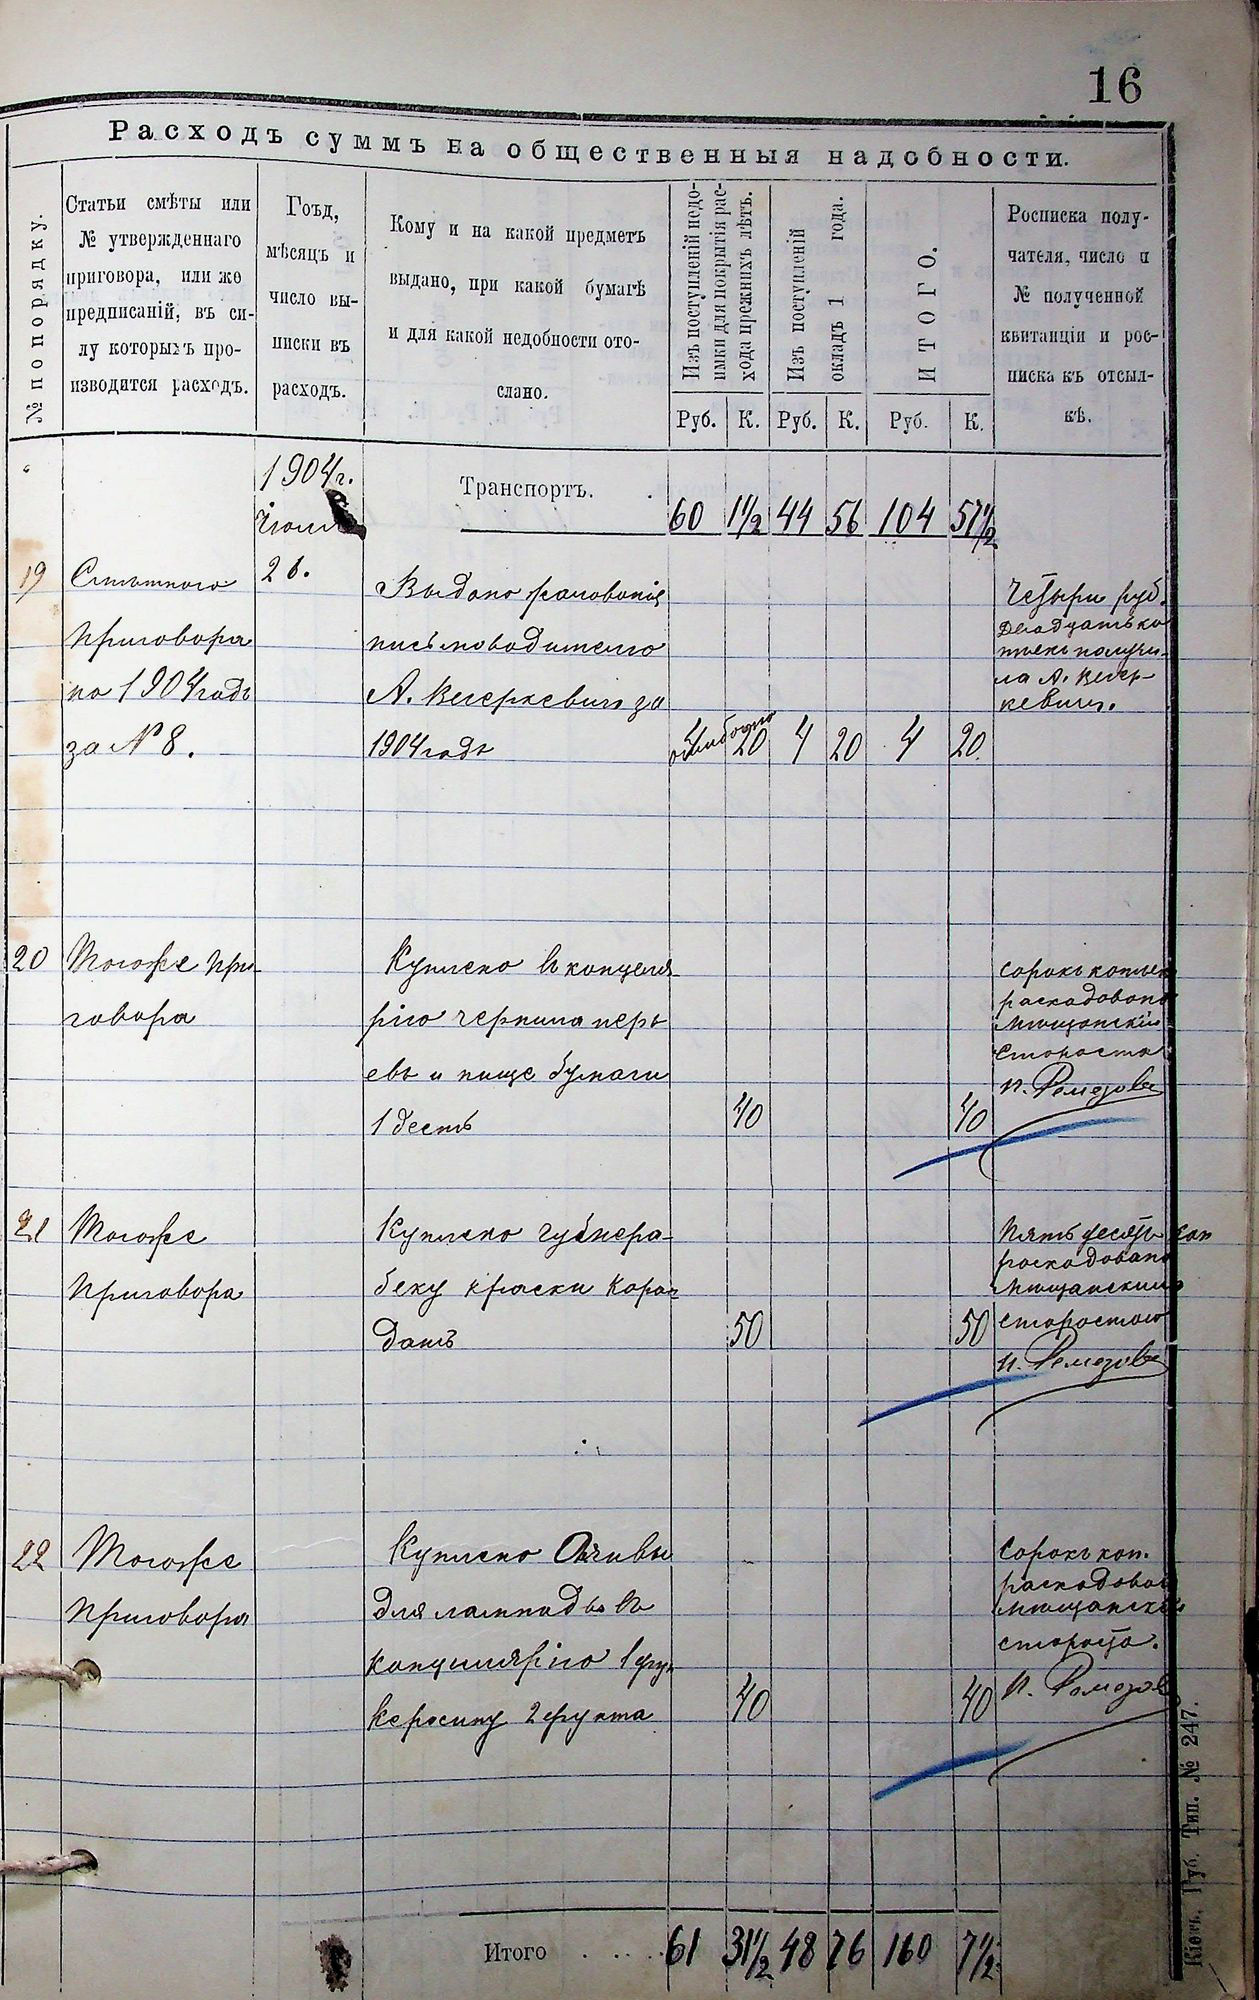 16
Расходъ суммъ на общественныя надобности.
№ по порядку.
Статьи смѣты или
№ утвержденнаго
приговора, или же
предписаній, въ си-
лу которыхъ про-
изводится расходъ.
Гоъд,
мѣсяцъ и
число вы-
писки въ
расходъ.
Кому и на какой предметъ
выдано, при какой бумагѣ
и для какой недобности ото-
слано.
Изъ поступленій недо-
имки для покрытія рас-
хода прежнихъ лѣтъ.
Изъ поступленій
окладъ 1 года.
ИТОГО.
Росписка полу-
чателя, число и
№ полученной
квитанціи и рос-
писка къ отсыл-
кѣ.
Руб. К. Руб. К. Руб. К.
1904 г.
Транспортъ.
60 1 1/2 44 56 104 57 1/2
19 Смѣтного
приговора
на 1904 годъ
за № 8.
26.
Выдано
письмоводителю
А. за
1904 годъ
ошибочно
4 20 4 20 4 20
Четыри руб.
двадцать ко
получи-
ла А.
20 Тогоже при-
говора
Куплено въ канцеля-
рію чернила перь
евъ и пище бумаги
1 десть
40 40
сорокъ копѣек
расходовано
мѣщанскій
староста
П. Ремезовъ
21 Тогоже
приговора
Куплено
краски каран
дашъ
50 50
Пять десятъ коп
расходовано
мѣщанскимъ
старостою
П. Ремезовъ
22 Тогоже
приговора
Куплено Оливы
для лампадъ въ
канцилярію 1 фун
керосину 2 фунта
40 40
Сорокъ коп.
расходовал
мѣщанскій
староста.
П. Ремезов
Итого
61 31 1/2 48 76 160 7 1/2
Кіевъ, Губ. Тип. № 247.